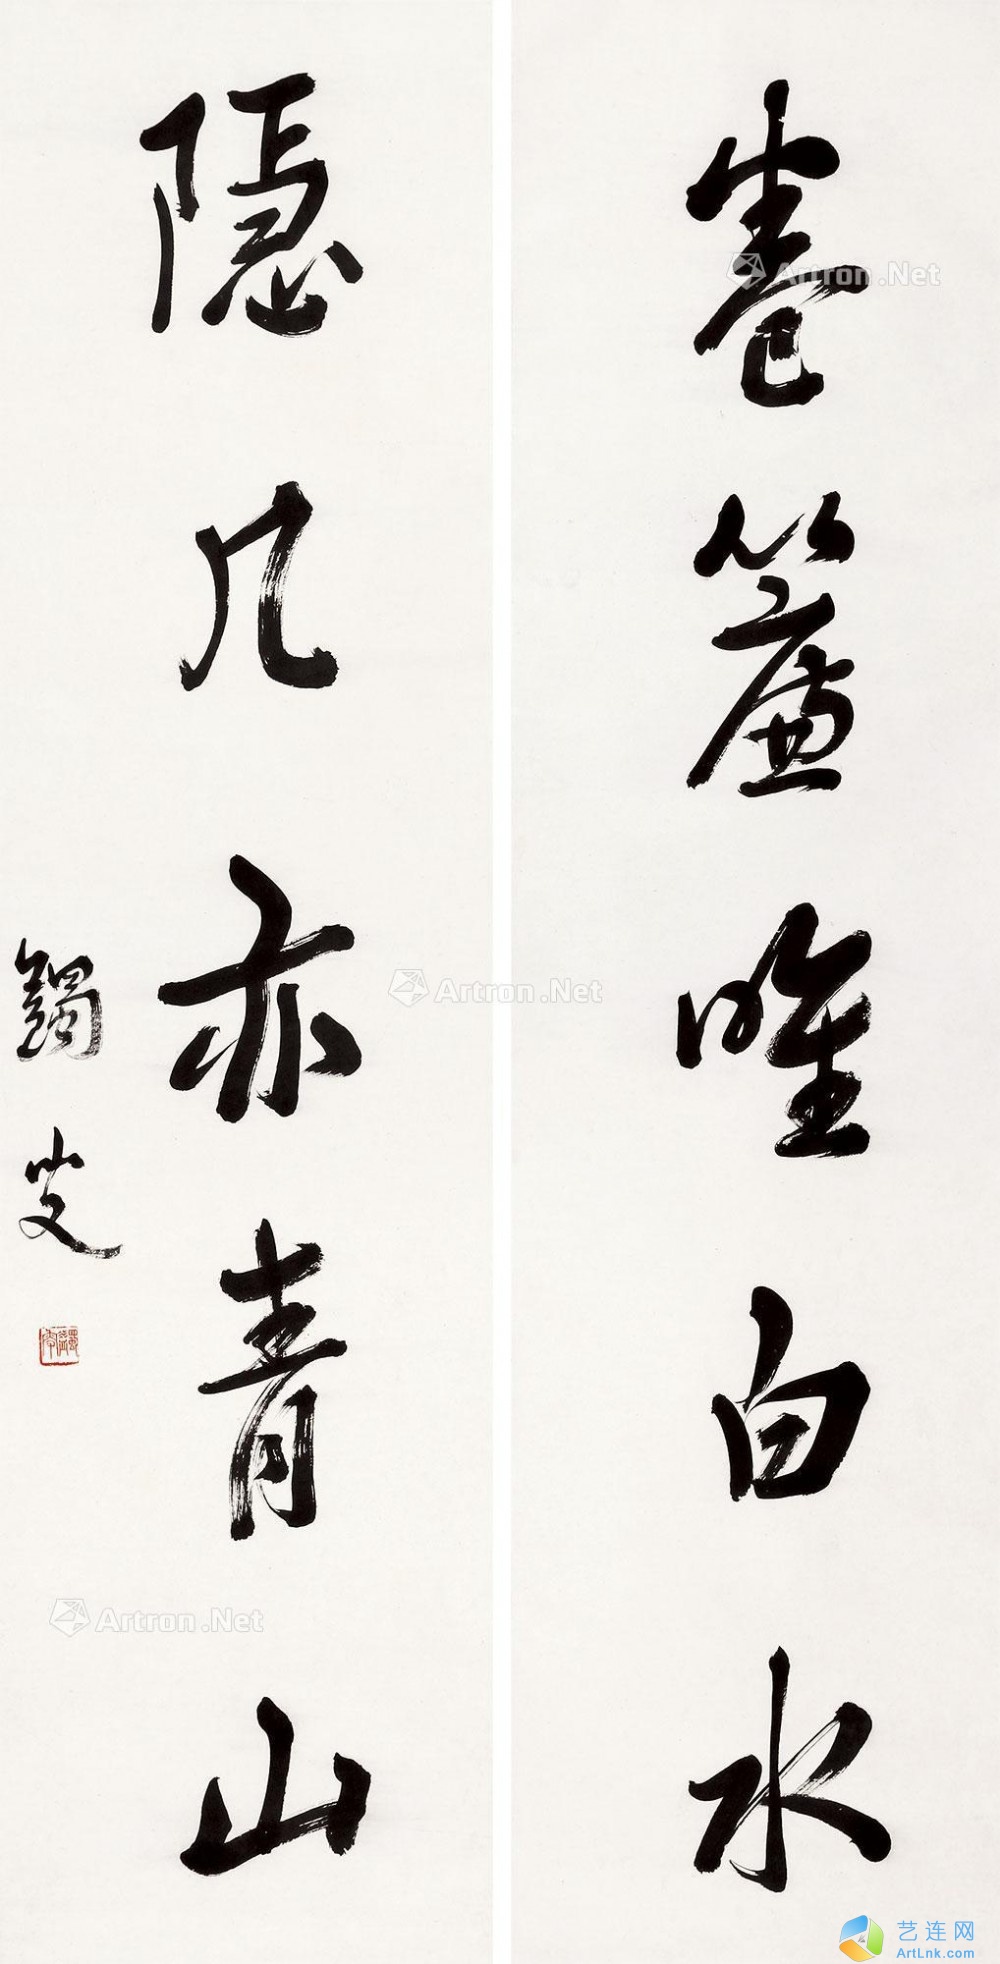 卷簾唯白水
隱几亦青山
鐲叟
Artron.Net
Artron.Net
Artron.Net
艺连网
ArtLnk.com